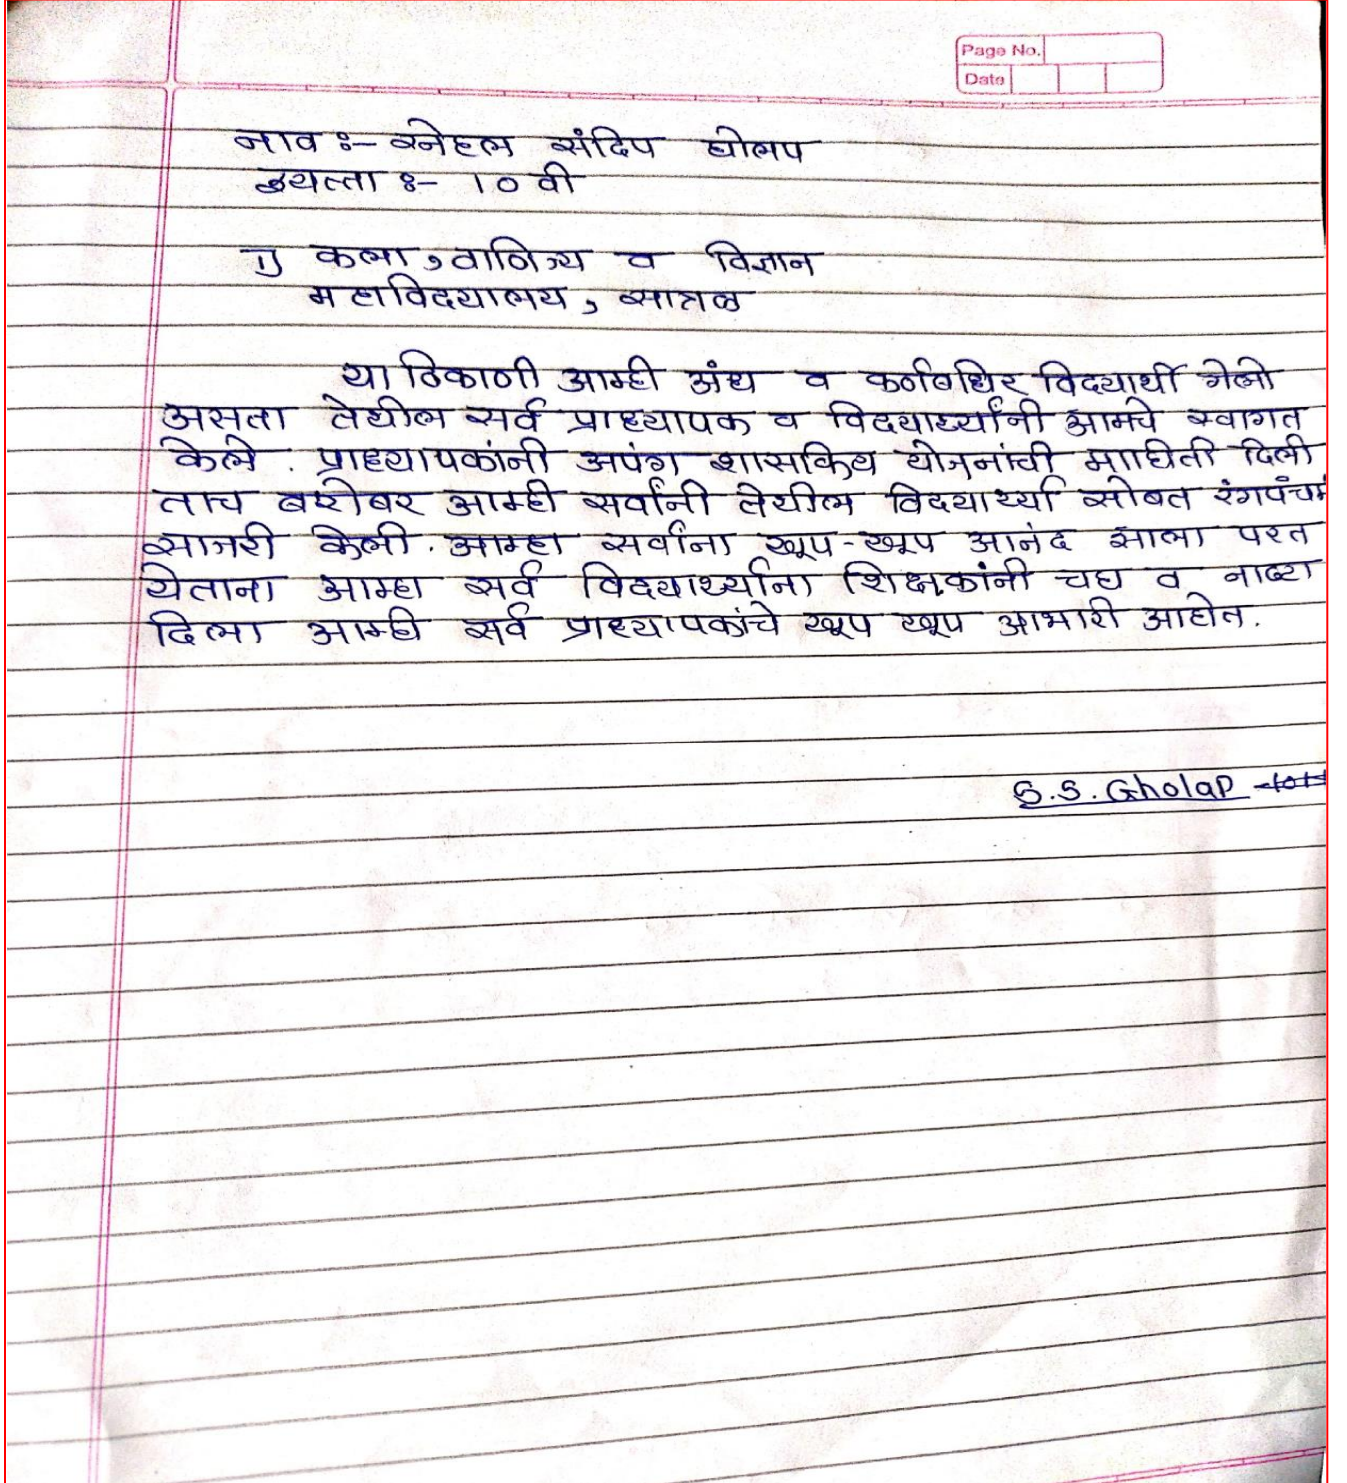 Page No.
Date
नाव :- स्नेहल संदिप घोलप
इयत्ता :- 10 वी
1) कला, वाणिज्य व विज्ञान
महाविदयालय, सात्रळ
या ठिकाणी आम्ही अंध व कर्णबधिर विदयार्थी गेलो
असता तेथील सर्व प्राध्यापक व विदयार्थ्यांनी आमचे स्वागत
केले. प्राध्यापकांनी अपंग शासकिय योजनांची माहिती दिली
ताच बरोबर आम्ही सर्वांनी तेथील विदयार्थ्यां सोबत रंगपंचमी
साजरी केली. आम्हा सर्वांना खूप-खूप आनंद झाला परत
येताना आम्हा सर्व विदयार्थ्यांना शिक्षकांनी चहा व नाष्टा
दिला आम्ही सर्व प्राध्यापकांचे खूप खूप आभारी आहोत.
S.S. Gholap